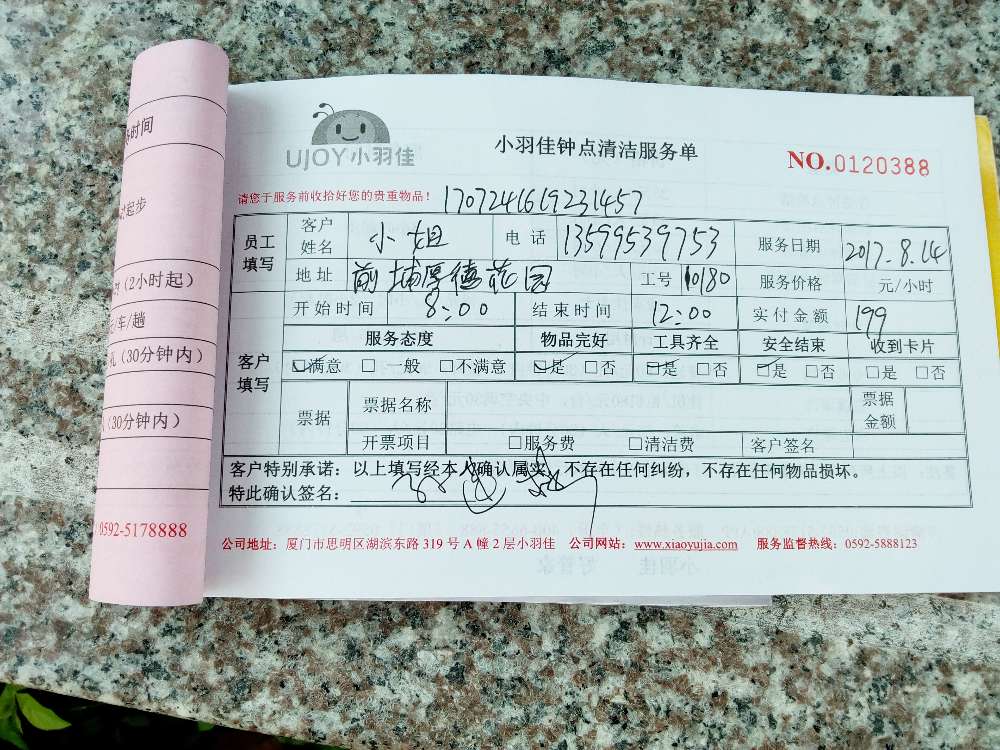 务时间
时起步
时（2小时起）
元/车/趟
（30分钟内）
（30分钟内）
0592-5178888
UJOY小羽佳
小羽佳钟点清洁服务单
NO.0120388
请您于服务前收拾好您的贵重物品！ 1707241619231457
员工填写 客户姓名 小姐 电话 13599539753 服务日期 2017.8.14
地址 前埔厚德花园 工号 10180 服务价格 元/小时
开始时间 8:00 结束时间 12:00 实付金额 199
客户填写 服务态度 物品完好 工具齐全 安全结束 收到卡片
☑满意 □一般 □不满意 ☑是 □否 ☑是 □否 ☑是 □否 □是 □否
票据 票据名称 票据金额
开票项目 □服务费 □清洁费 客户签名
客户特别承诺：以上填写经本人确认属实，不存在任何纠纷，不存在任何物品损坏。
特此确认签名：
公司地址：厦门市思明区湖滨东路 319 号 A 幢 2 层小羽佳 公司网站：www.xiaoyujia.com 服务监督热线：0592-5888123